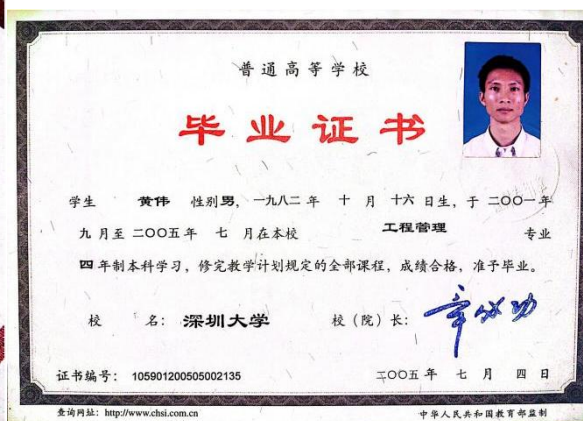 普通高等学校
毕业证书
学生 黄伟 性别男，一九八二年 十 月 十六 日生，于 二〇〇一年
九 月至 二〇〇五年 七 月在本校 工程管理 专业
四 年制本科学习，修完教学计划规定的全部课程，成绩合格，准予毕业。
校 名：深圳大学 校（院）长：章必功
证书编号：105901200505002135 二〇〇五 年 七 月 四 日
查询网址：http://www.chsi.com.cn 中华人民共和国教育部监制